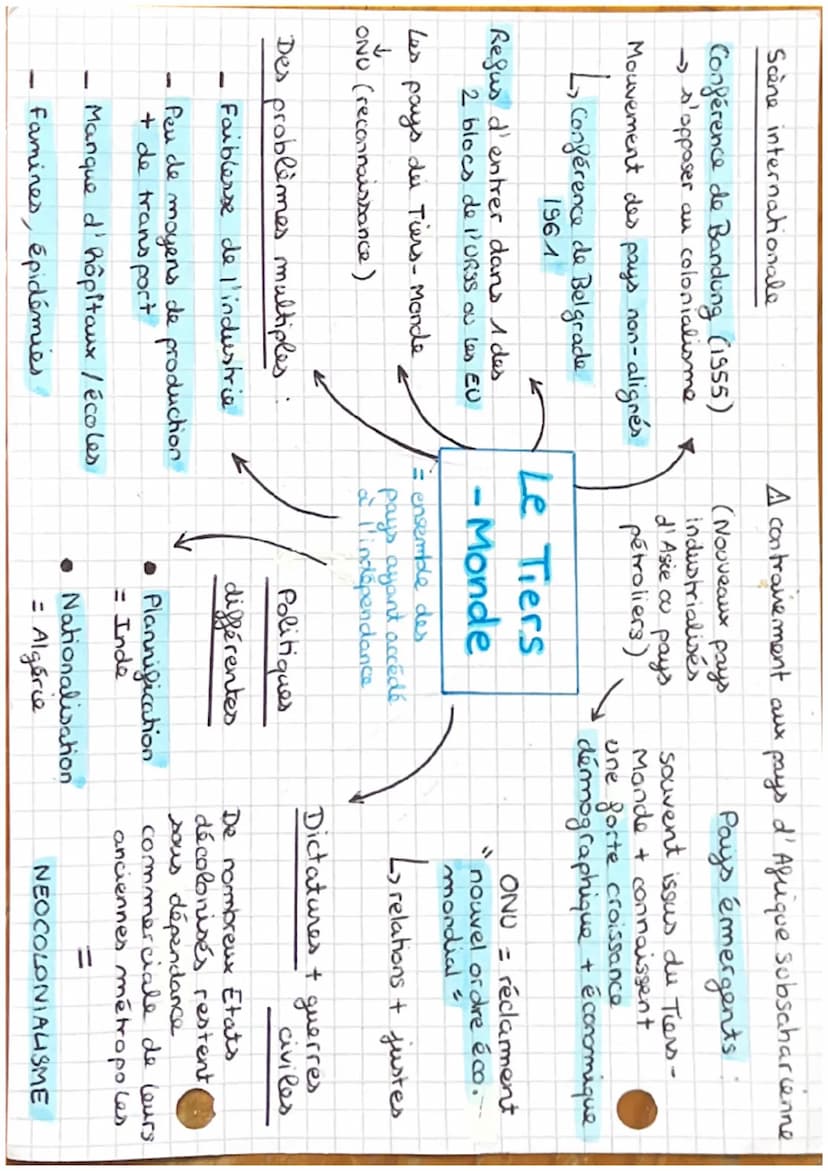 Scène internationale
Conférence de Bandung (1955)
→ s'opposer au colonialisme
Mouvement des pays non-alignés
↳ Conférence de Belgrade
1961
Refus d'entrer dans 1 des
2 blocs de l'URSS ou les EU
Les pays du Tiers-Monde
↓
ONU (reconnaissance)
Des problèmes multiples :
- Faiblesse de l'industrie
- Peu de moyens de production
+ de transport
- Manque d'hôpitaux / écoles
- Famines, épidémies
Le Tiers
-Monde
= ensemble des
pays ayant accédé
à l'indépendance
Politiques
différentes
• Plannification
= Inde
• Nationalisation
= Algérie
⚠ contrairement aux pays d'Afrique subsaharienne
(Nouveaux pays
industrialisés
d'Asie ou pays
pétroliers)
Pays émergents :
souvent issus du Tiers-
Monde + connaissent
une forte croissance
démographique + économique
ONU = réclament
"nouvel ordre éco.
mondial"
↳ relations + justes
Dictatures + guerres
civiles
De nombreux Etats
décolonisés restent
sous dépendance
commerciale de leurs
anciennes métropoles
=
NEOCOLONIALISME